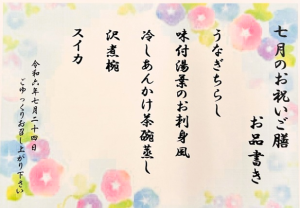 七月のお祝いご膳
お品書き
うなぎちらし
味付湯葉のお刺身風
冷しあんかけ茶碗蒸し
沢煮椀
スイカ
令和六年七月二十四日
ごゆっくりお召し上がり下さい